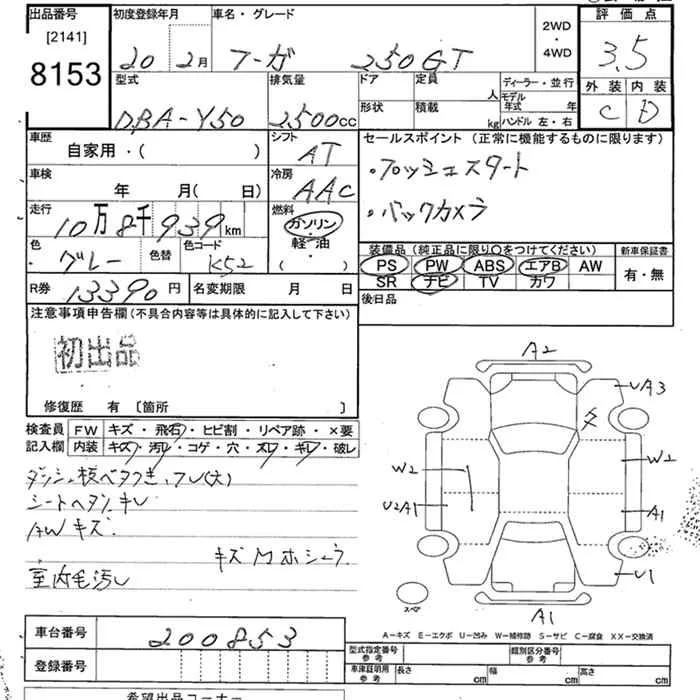 出品番号 初度登録年月 車名・グレード 2WD・4WD 評価点
[2141]
8153 20 2月 フーガ 250GT 3.5
型式 排気量 ドア 定員 人 ディーラー・並行 外装 内装
形状 積載 kg モデル年式 年 C D
DBA-Y50 2500cc ハンドル 左・右
車歴 シフト セールスポイント (正常に機能するものに限ります)
自家用・( ) AT ・プッシュスタート
車検 冷房
年 月( 日) AAC ・バックカメラ
走行 燃料
10万8千939km ガソリン・軽油 ( )
色 色替 色コード 装備品(純正品に限り○をつけてください) 新車保証書
グレー K52 PS PW ABS エアB AW 有・無
R券 13390円 名変期限 月 日 SR ナビ TV カワ
後日品
注意事項申告欄(不具合内容等は具体的に記入して下さい)
初出品
修復歴 有 [箇所 ]
検査員 FW キズ・飛石・ヒビ割・リペア跡・×要
記入欄 内装 キズ・汚レ・コゲ・穴・スレ・キレ・破レ
シートヘタリ キレ
AWキズ
室内毛汚レ
A2
UA3
W2 W2
U2A1 A1
U1
スペア
A1
A−キズ E−エクボ U−凹み W−補修跡 S−サビ C−腐食 XX−交換済
車台番号 200853
登録番号
型式指定番号 参考 類別区分番号 参考
車庫証明用 参考 長さ cm 幅 cm 高さ cm
希望出品コーナー